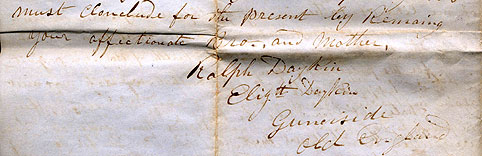 must Conclude for the present by Remaing
your affectionate Bro, and Mother,
Ralph Daykin
Elizth Daykin
Guneiside
Old England